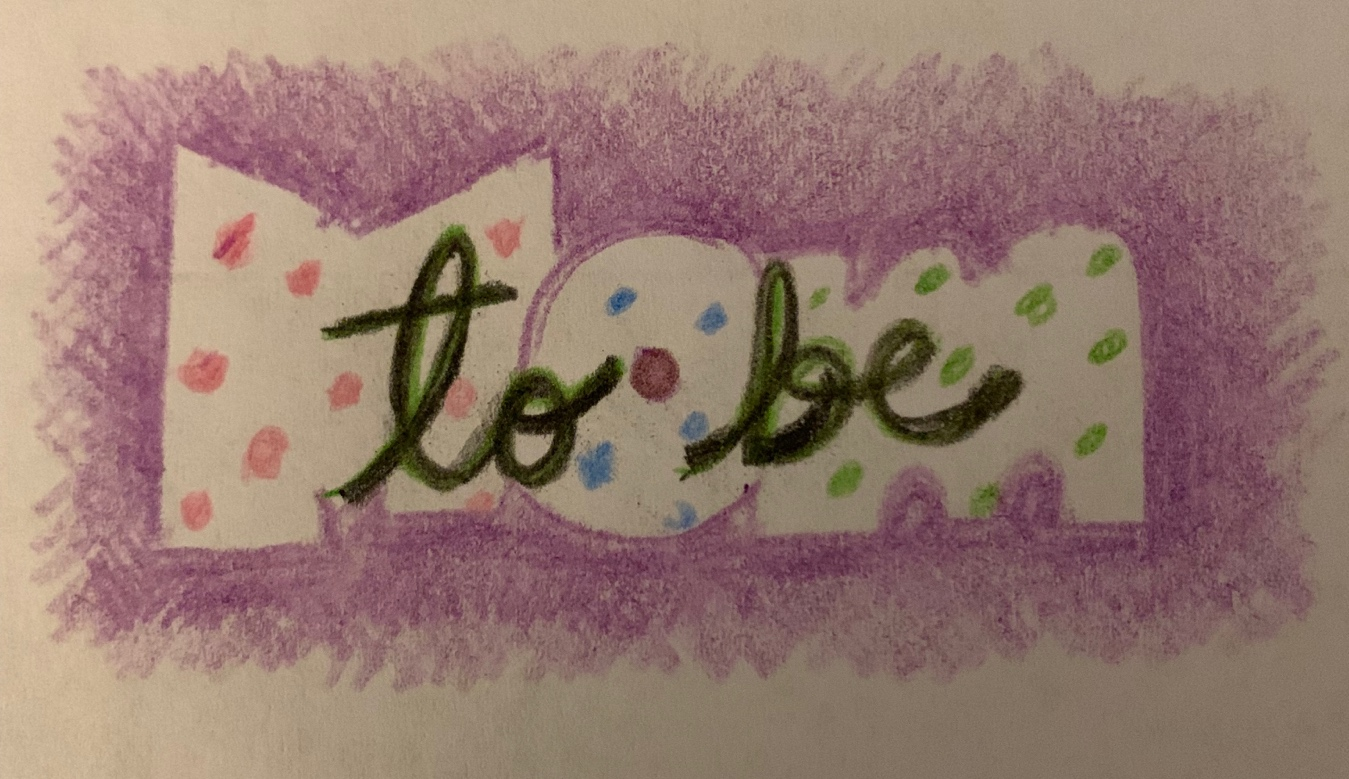 Mom
to be